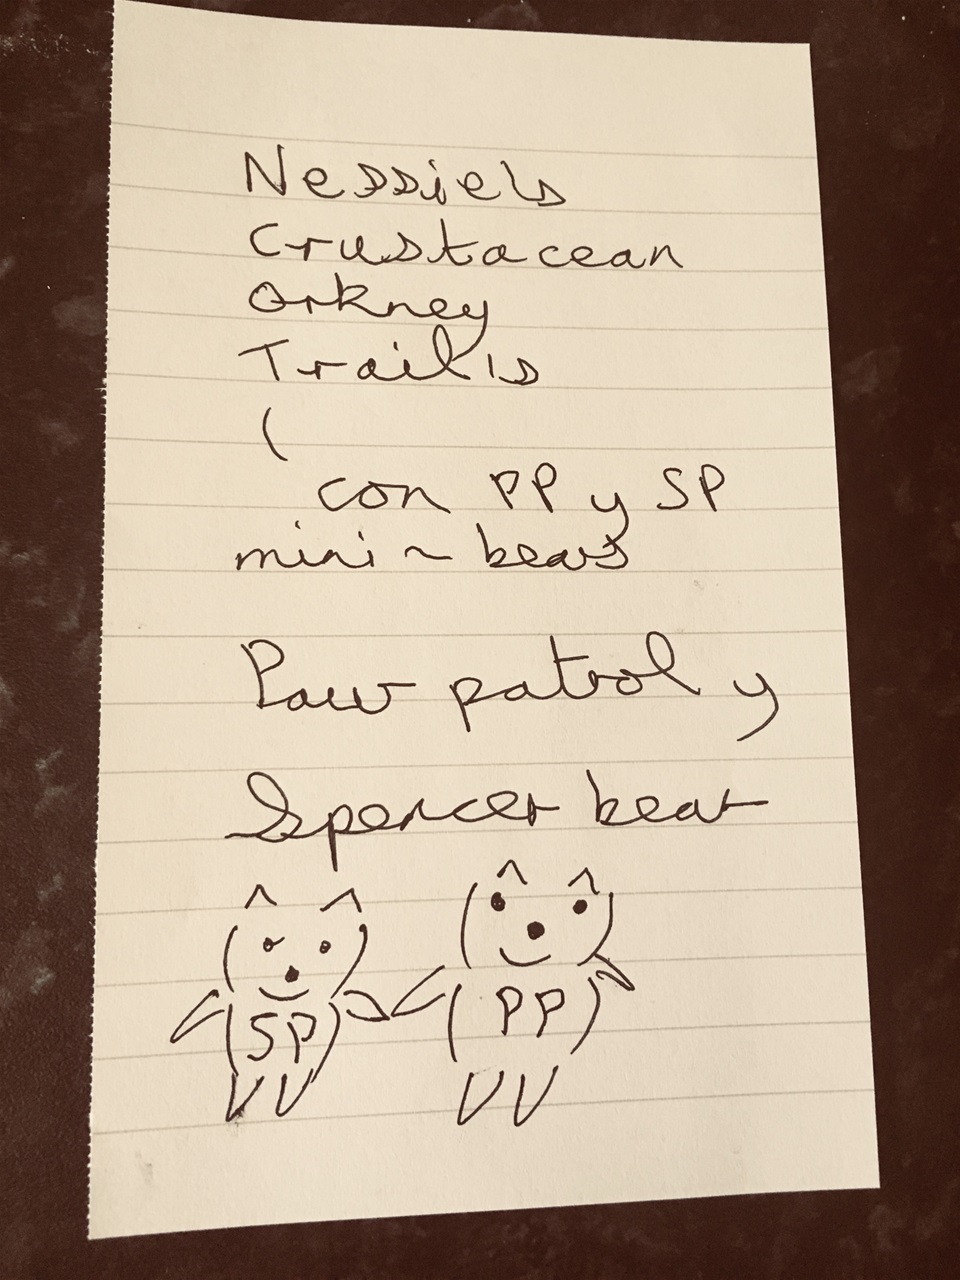 Nessie's
Crustacean
Orkney
Trails
(
con PP y SP
mini - bears
Paw patrol y
Spencer bear
SP PP